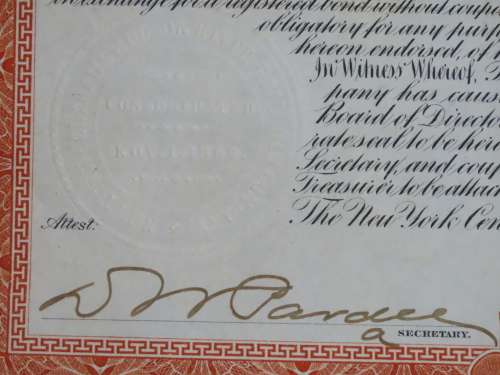 in exchange for a registered bond without coupo
obligatory for any purp
hereon endorsed, of
In Witness Whereof, T
pany has caus
Board of Directo
rate seal to be here
Secretary, and coup
Treasurer to be attac
The New York Cen
Attest:
D W Pardee
a SECRETARY.